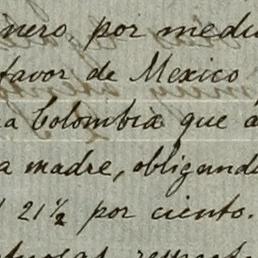 nero, por medi
favor de Mexico
a Colombia que a
a madre, obligando
21½ por ciento.